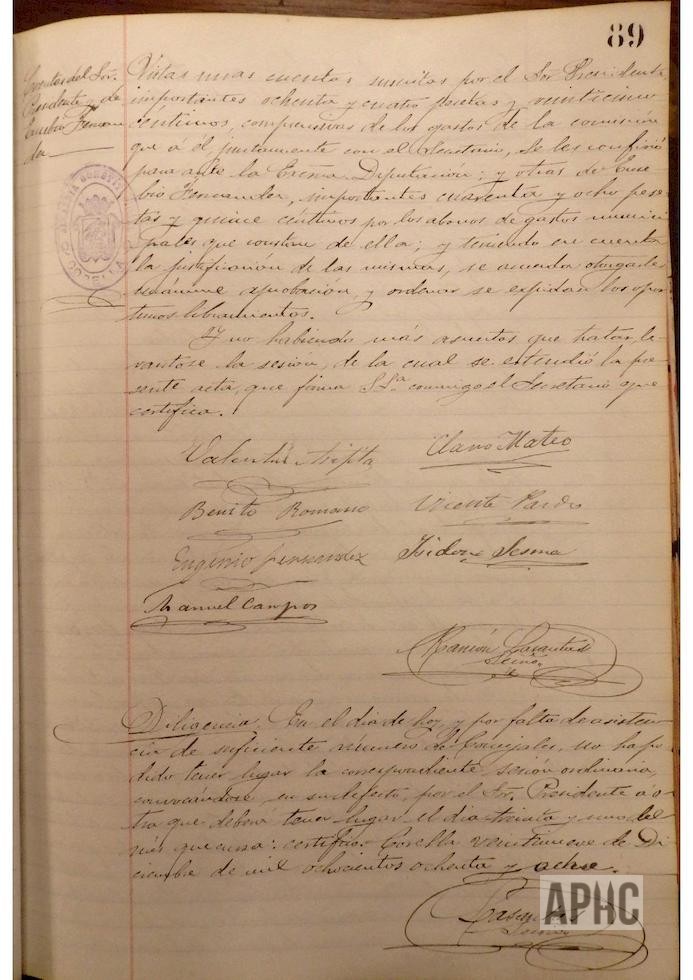 89
Cuentas del Sor.
Presidente y de
Eusebio Fernan
dez
Vistas unas cuentas suscritas por el Sor Presidente
importantes ochenta y cuatro pesetas y veinticinco
centimos, comprensivas de los gastos de la comisión
que á él, juntamente con el Secretario, se les confirió
para ante la Excma Diputación; y otras de Euse
bio Fernandez, importantes cuarenta y ocho pese
tas y quince céntimos por los abonos de gastos munici
pales que constan de ella; y teniendo en cuenta
la justificación de las mismas, se acuerda otorgarles
unánime aprobación, y ordenar se expidan los opor
tunos libramientos.
Y no habiendo más asuntos que tratar le
vantóse la sesión, de la cual se extendió la pre
sente acta, que firma S.Sa. conmigo el Secretario que
certifica.
Valentin
Clano Mateo
Benito Romano
Vicente Pardo
Eugenio Fernandez
Isidoro Sesma
Manuel Campos
Ramón
Srino.
Diligencia. En el dia de hoy, y por falta de asisten
cia de suficiente numero de Concejales, no ha po
dido tener lugar la correspondiente sesión ordinaria,
convocándose en su defecto, por el Sor. Presidente a o
tra que deberá tener lugar el dia treinta y uno del
mes que cursa: certifico. Corella veintinueve de Di
ciembre de mil ochocientos ochenta y ocho.
APHC